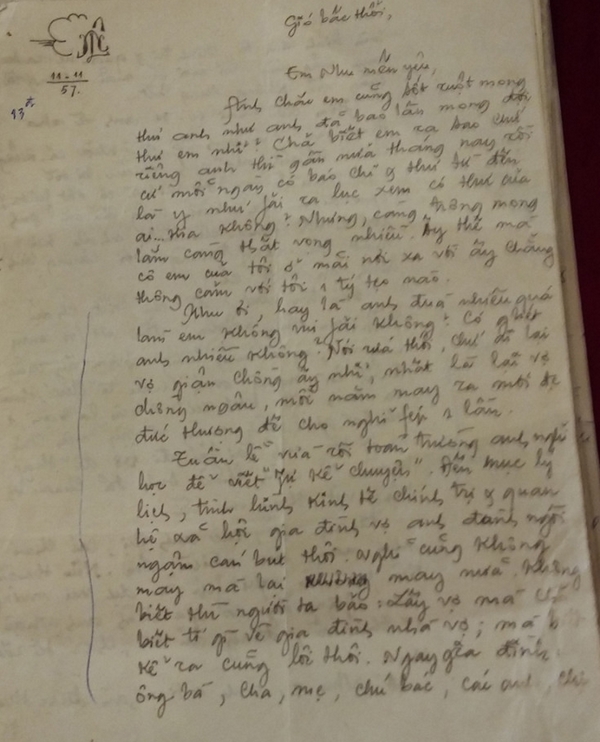 Gió bấc thổi,
11-11
57.
Em Nhu mến yêu,
Tính cháu em cũng sốt ruột mong
thư anh như anh đã bao lần mong đợi
thư em nhỉ? Chả biết em ra bao chứ
riêng anh thì gần nửa tháng nay rồi
cứ mỗi ngày có báo chí y thư từ đến
là y như fải ra lục xem có thư của
ai... Ma không? Nhưng, càng trông mong
lắm càng thất vọng nhiều. Ấy thế mà
cô em của tôi ở mãi nơi xa vời ấy chẳng
thông cảm với tôi 1 tý tẹo nào.
Nhu ơi, hay là anh đùa nhiều quá
làm em không vui fải không? Có ghét
anh nhiều không? Nói quá thôi, chứ ai lại
vợ giận chồng ấy nhỉ, nhất là lại vợ
chồng ngâu, mỗi năm may ra mới được
đức thượng đế cho nghỉ fép 1 lần.
Tuần lễ vừa rồi toàn trường anh nghỉ
học để viết "Tự kể chuyện". Đến mục lý
lịch, tình hình kinh tế chính trị y quan
hệ xã hội gia đình vợ anh đành ngồi
ngậm cán bút thôi. Nghĩ cũng không
may mà lại may nữa. Không
biết thì người ta bảo: Lấy vợ mà
biết tí gì về gia đình nhà vợ; mà
kể ra cũng lôi thôi. Ngay gia đình
ông bà, cha, mẹ, chú bác, các anh, chị